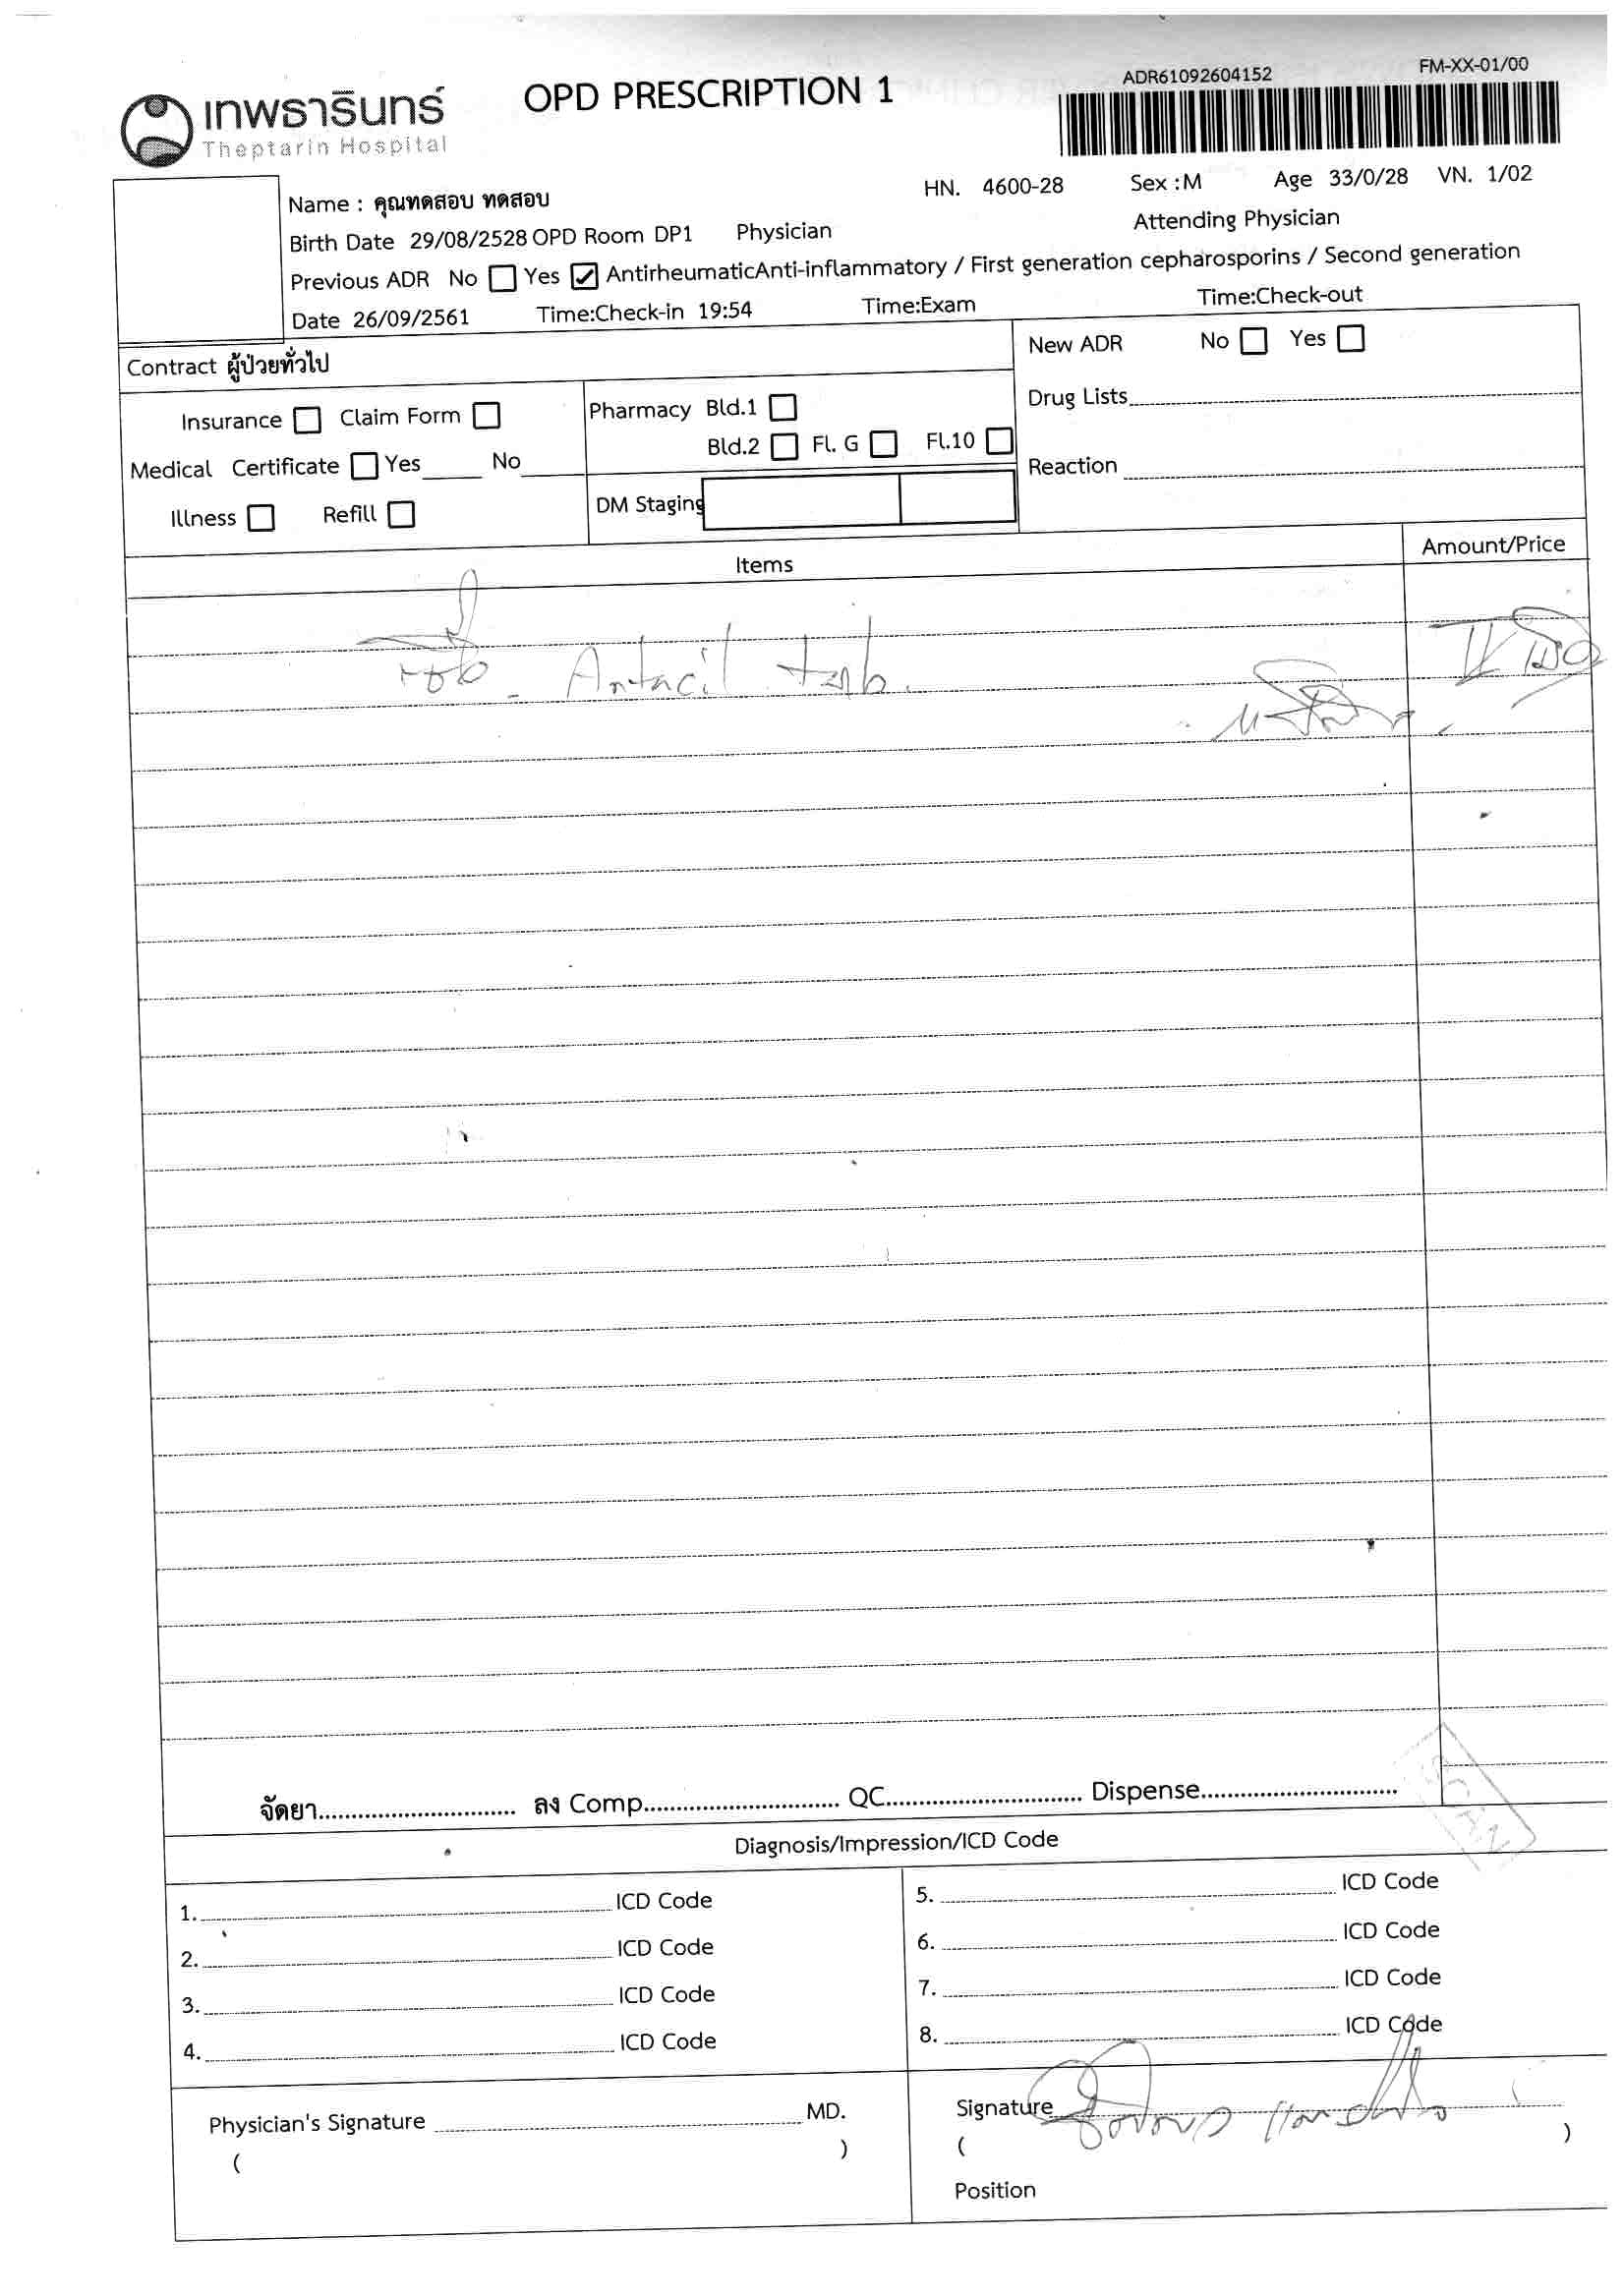 เทพธารินทร์
Theptarin Hospital
OPD PRESCRIPTION 1
ADR61092604152
FM-XX-01/00
HN. 4600-28 Sex :M Age 33/0/28 VN. 1/02
Name : คุณทดสอบ ทดสอบ
Birth Date 29/08/2528 OPD Room DP1 Physician Attending Physician
Previous ADR No Yes AntirheumaticAnti-inflammatory / First generation cepharosporins / Second generation
Date 26/09/2561 Time:Check-in 19:54 Time:Exam Time:Check-out
Contract ผู้ป่วยทั่วไป
New ADR No Yes
Insurance Claim Form
Pharmacy Bld.1
Drug Lists
Medical Certificate Yes No
Bld.2 Fl. G Fl.10
Reaction
Illness Refill
DM Staging
Items Amount/Price
- Antacil tab.
จัดยา ลง Comp. QC. Dispense
SCAN
Diagnosis/Impression/ICD Code
1. ICD Code
2. ICD Code
3. ICD Code
4. ICD Code
5. ICD Code
6. ICD Code
7. ICD Code
8. ICD Code
Physician's Signature MD.
( )
Signature
( )
Position